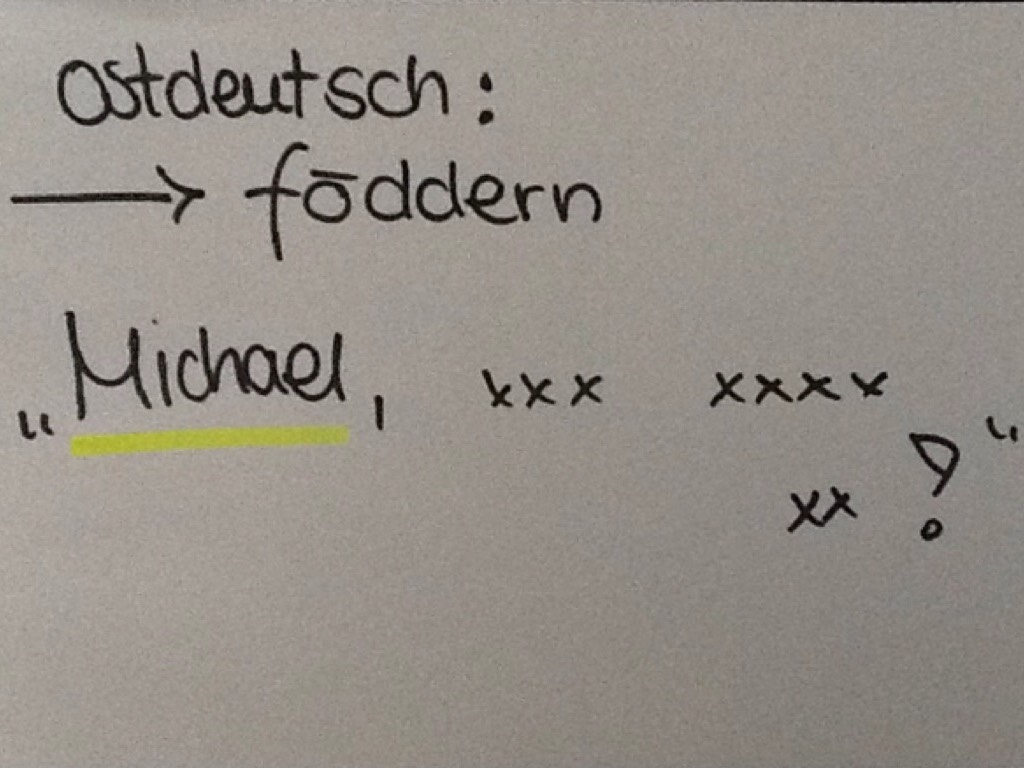 Ostdeutsch:
→ föddern
„Michael, xxx xxxx
xx?“